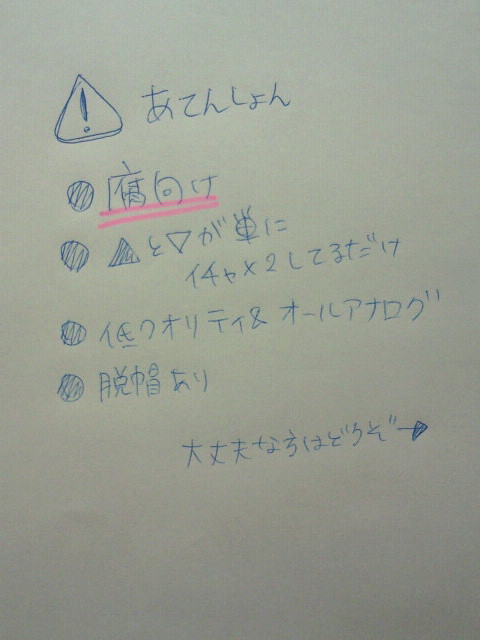 ! あてんしょん
● 腐向け
● ▲と▽が単に
イチャ×2してるだけ
● 低クオリティ& オールアナログ
● 脱帽あり
大丈夫な方はどうぞ→